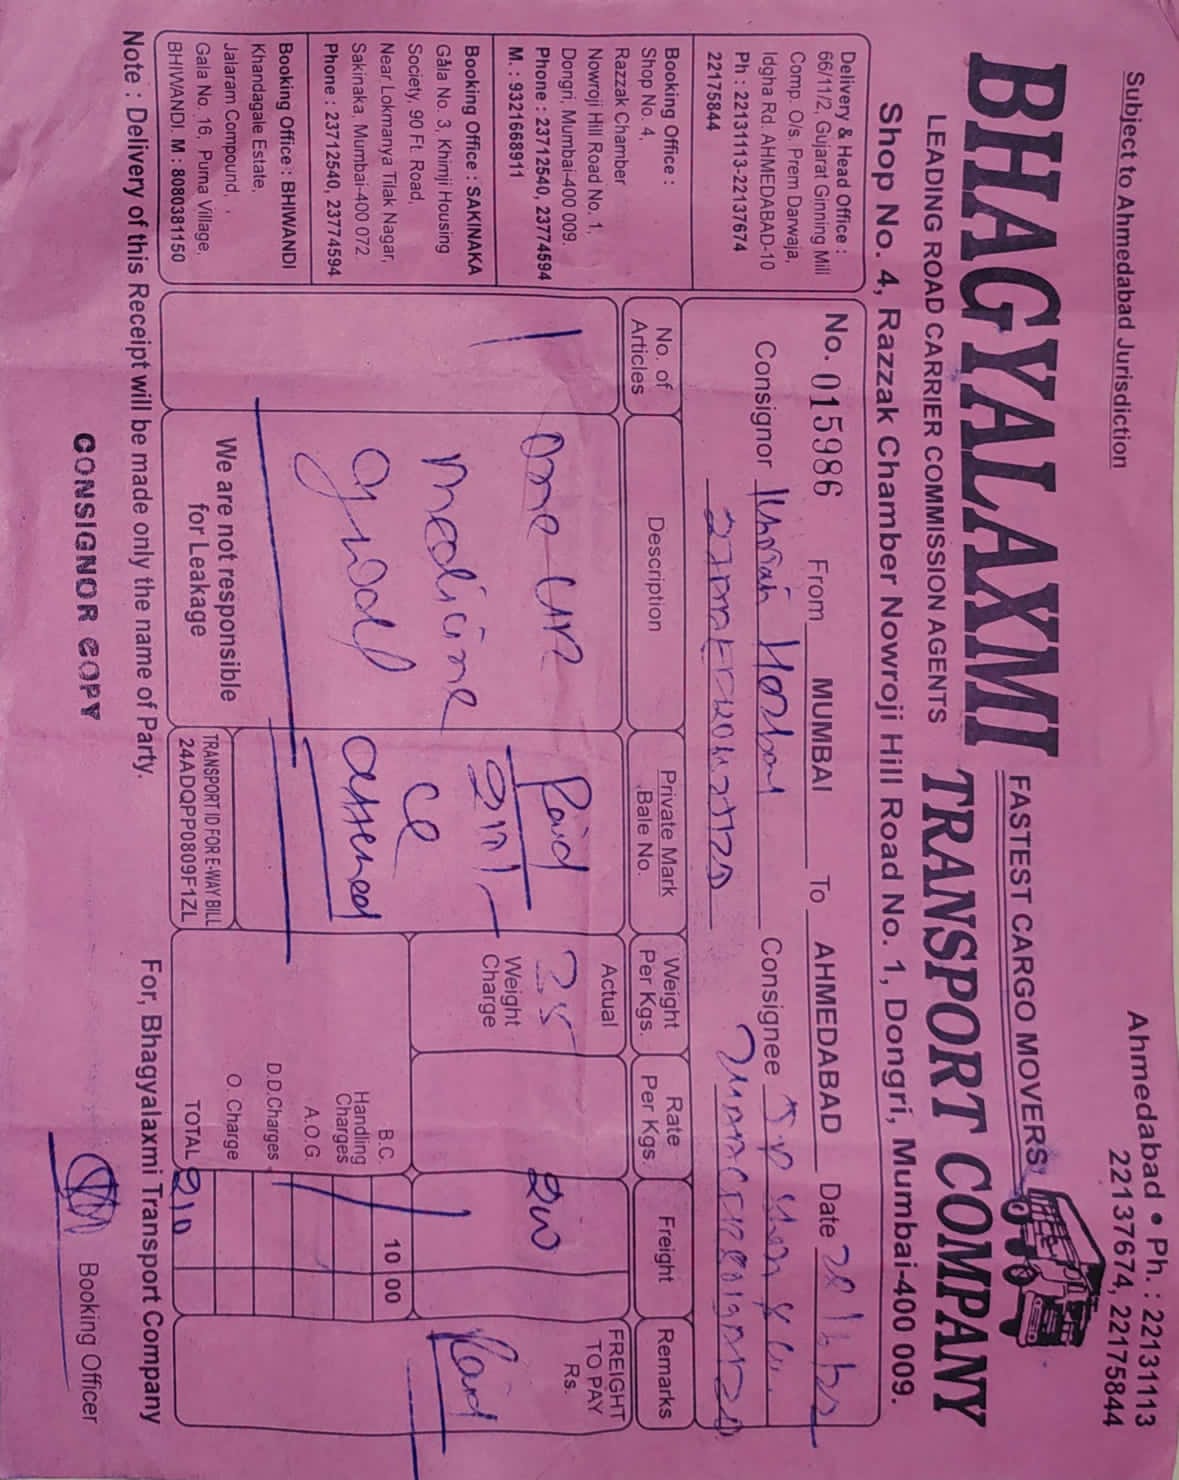 Subject to Ahmedabad Jurisdiction
Ahmedabad • Ph. : 22131113
22137674, 22175844
FASTEST CARGO MOVERS
BHAGYALAXMI TRANSPORT COMPANY
LEADING ROAD CARRIER COMMISSION AGENTS
Shop No. 4, Razzak Chamber Nowroji Hill Road No. 1, Dongri, Mumbai-400 009.
Delivery & Head Office :
66/11/2, Gujarat Ginning Mill
Comp. O/s. Prem Darwaja,
Idgha Rd. AHMEDABAD-10
Ph : 22131113-22137674
22175844
Booking Office :
Shop No. 4,
Razzak Chamber
Nowroji Hill Road No. 1,
Dongri, Mumbai-400 009.
Phone : 23712540, 23774594
M. : 9321668911
Booking Office : SAKINAKA
Gala No. 3, Khimji Housing
Society, 90 Ft. Road,
Near Lokmanya Tilak Nagar,
Sakinaka, Mumbai-400 072.
Phone : 23712540, 23774594
Booking Office : BHIWANDI
Khandagale Estate,
Jalaram Compound,
Gala No. 16, Purna Village,
BHIVANDI. M : 8080381150
No. 015986 From MUMBAI To AHMEDABAD Date
Consignor Consignee
No. of Articles
Description
Private Mark Bale No.
Weight Per Kgs.
Rate Per Kgs.
Freight
Remarks
1
one
medicine
Paid
210/-
Actual
25
Weight Charge
200
FREIGHT TO PAY Rs.
Paid
B.C. 10 00
Handling Charges
A.O.G.
D.D.Charges
O. Charge
TOTAL 210
We are not responsible
for Leakage
TRANSPORT ID FOR E-WAY BILL
24ADQPP0809F1ZL
Note : Delivery of this Receipt will be made only the name of Party.
For, Bhagyalaxmi Transport Company
CONSIGNOR COPY
Booking Officer